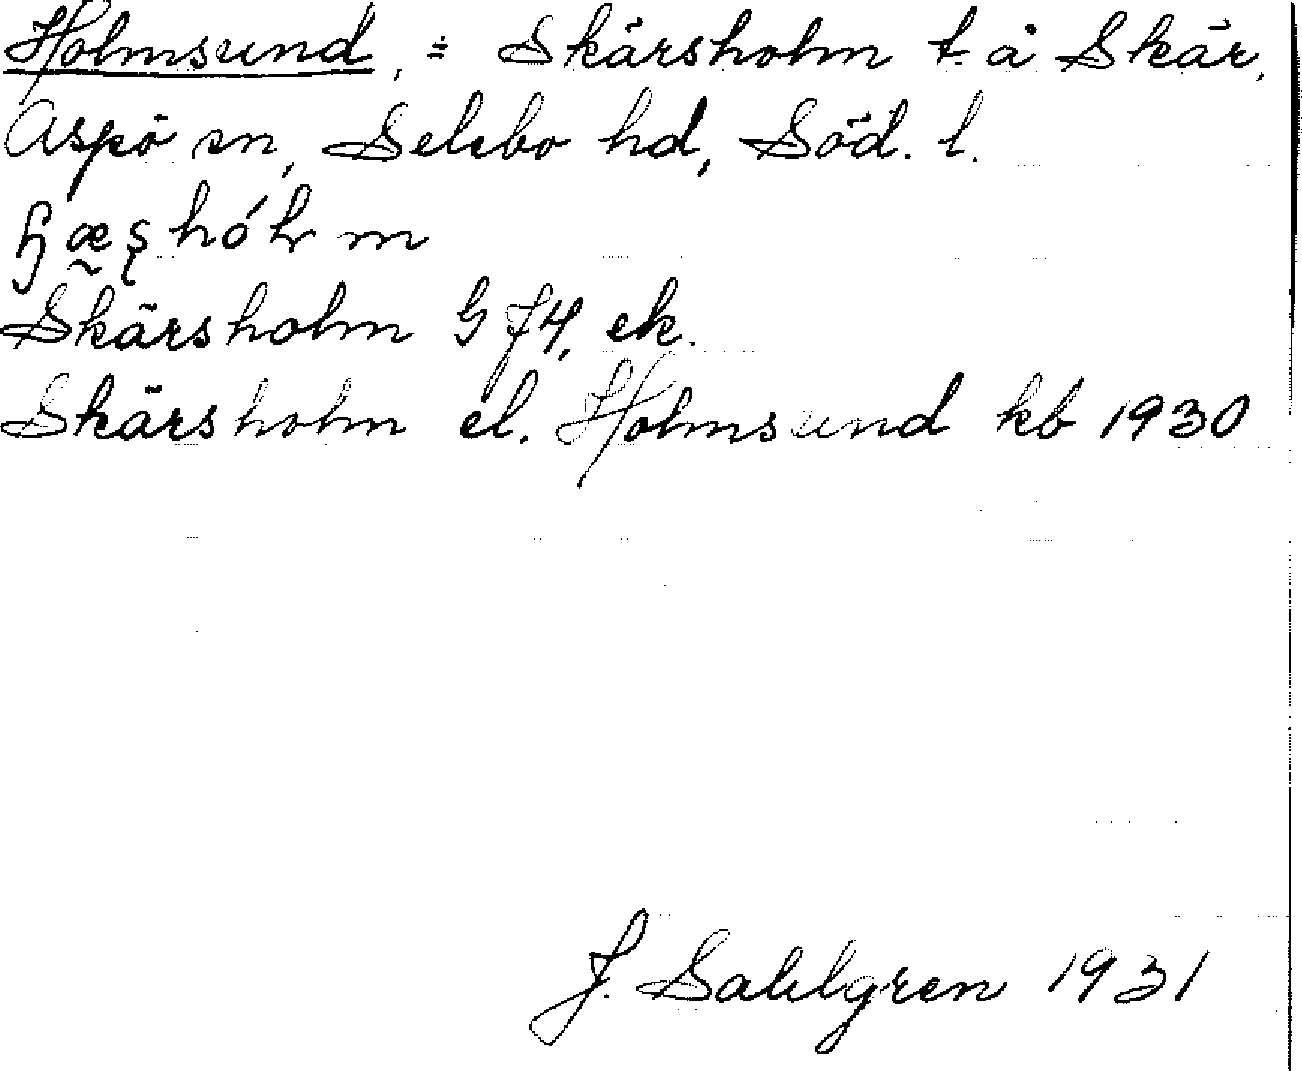 Holmsund, = Skärsholm t. å Skär,
Aspö sn, Selebo hd, Söd. l.
Skärsholm GJ4, ek.
Skärsholm el. Holmsund kb 1930
J. Sahlgren 1931